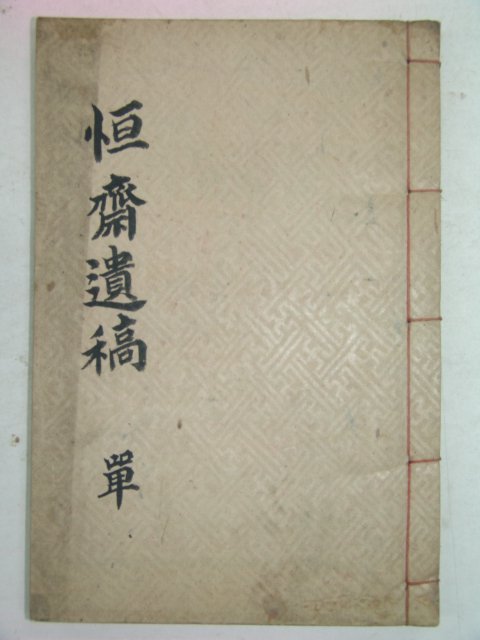 恒齋遺稿 單